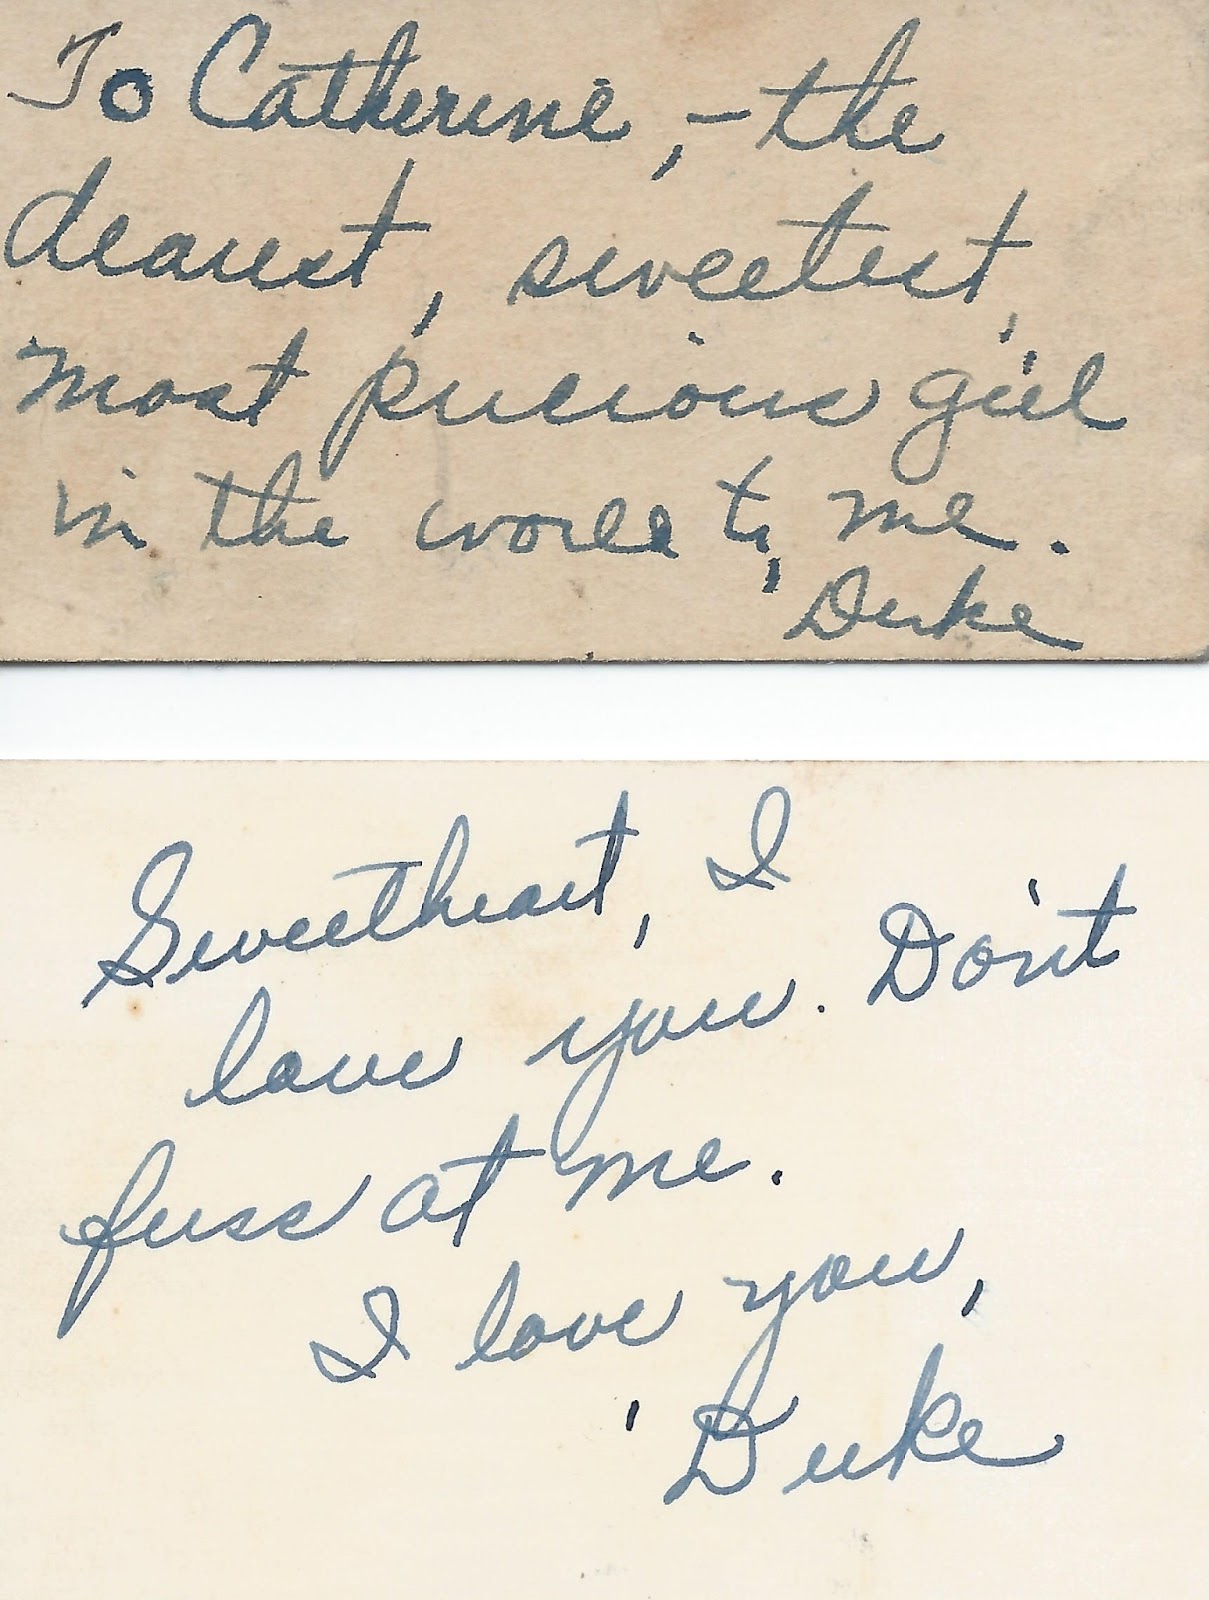 To Catherine, - the
dearest, sweetest,
most precious girl
in the world to me.
Duke
Sweetheart, I
love you. Don't
fuss at me.
I love you,
Duke